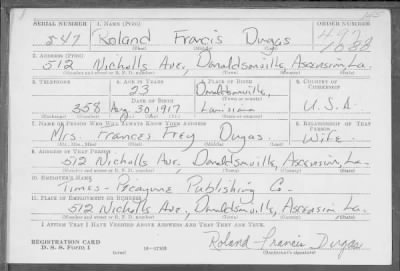 SERIAL NUMBER 1. NAME (Print) ORDER NUMBER
547 Roland Francis Dugas 1688
(First) (Middle) (Last)
2. ADDRESS (Print)
512 Nicholls Ave., Donaldsonville, Ascension, La.
(Number and street or R. F. D. number) (Town) (County) (State)
3. TELEPHONE 4. AGE IN YEARS 5. PLACE OF BIRTH 6. COUNTRY OF CITIZENSHIP
23 Donaldsonville,
DATE OF BIRTH (Town or county)
358 Aug. 30, 1917 Louisiana U.S.A.
(Mo.) (Day) (Yr.) (State or country)
7. NAME OF PERSON WHO WILL ALWAYS KNOW YOUR ADDRESS 8. RELATIONSHIP OF THAT PERSON
Mrs. Frances Frey Dugas. Wife
(Mr., Mrs., Miss) (First) (Middle) (Last)
9. ADDRESS OF THAT PERSON
512 Nicholls Ave., Donaldsonville, Ascension, La.
(Number and street or R. F. D. number) (Town) (County) (State)
10. EMPLOYER'S NAME
Times-Picayune Publishing Co.
11. PLACE OF EMPLOYMENT OR BUSINESS
512 Nicholls Ave., Donaldsonville, Ascension, La.
(Number and street or R. F. D. number) (Town) (County) (State)
I AFFIRM THAT I HAVE VERIFIED ABOVE ANSWERS AND THAT THEY ARE TRUE.
REGISTRATION CARD
D. S. S. Form 1 (over) 16-17105 Roland Francis Dugas
(Registrant's signature)